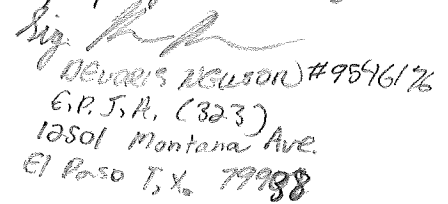 Sig.
DEVARIS NEWSON #9546176
E.P.J.A. (323)
12501 Montana Ave.
El Paso T,X. 79938